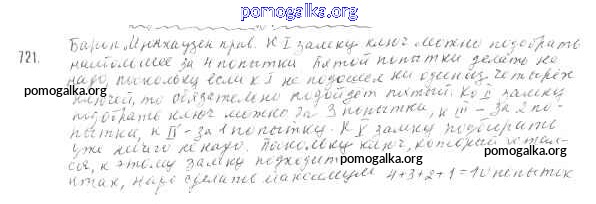 pomogalka.org
721. Барон Мюнхаузен прав. К I замку ключ можно подобрать
наибольшее за 4 попытки. Пятой попытки делать не
надо, поскольку если к I не подошел ни один из четырех
pomogalka.org
ключей, то обязательно подойдет пятый. Ко II замку
pomogalka.org
подобрать ключ можно за 3 попытки, к III – за 2 по-
пытки, к IV – за 1 попытку. К V замку подбирать
уже ничего не надо. Поскольку ключ, который остал-
pomogalka.org
pomogalka.org
ся, к этому замку подходит.
pomogalka.org
Итак, надо сделать максимум 4+3+2+1=10 попыток